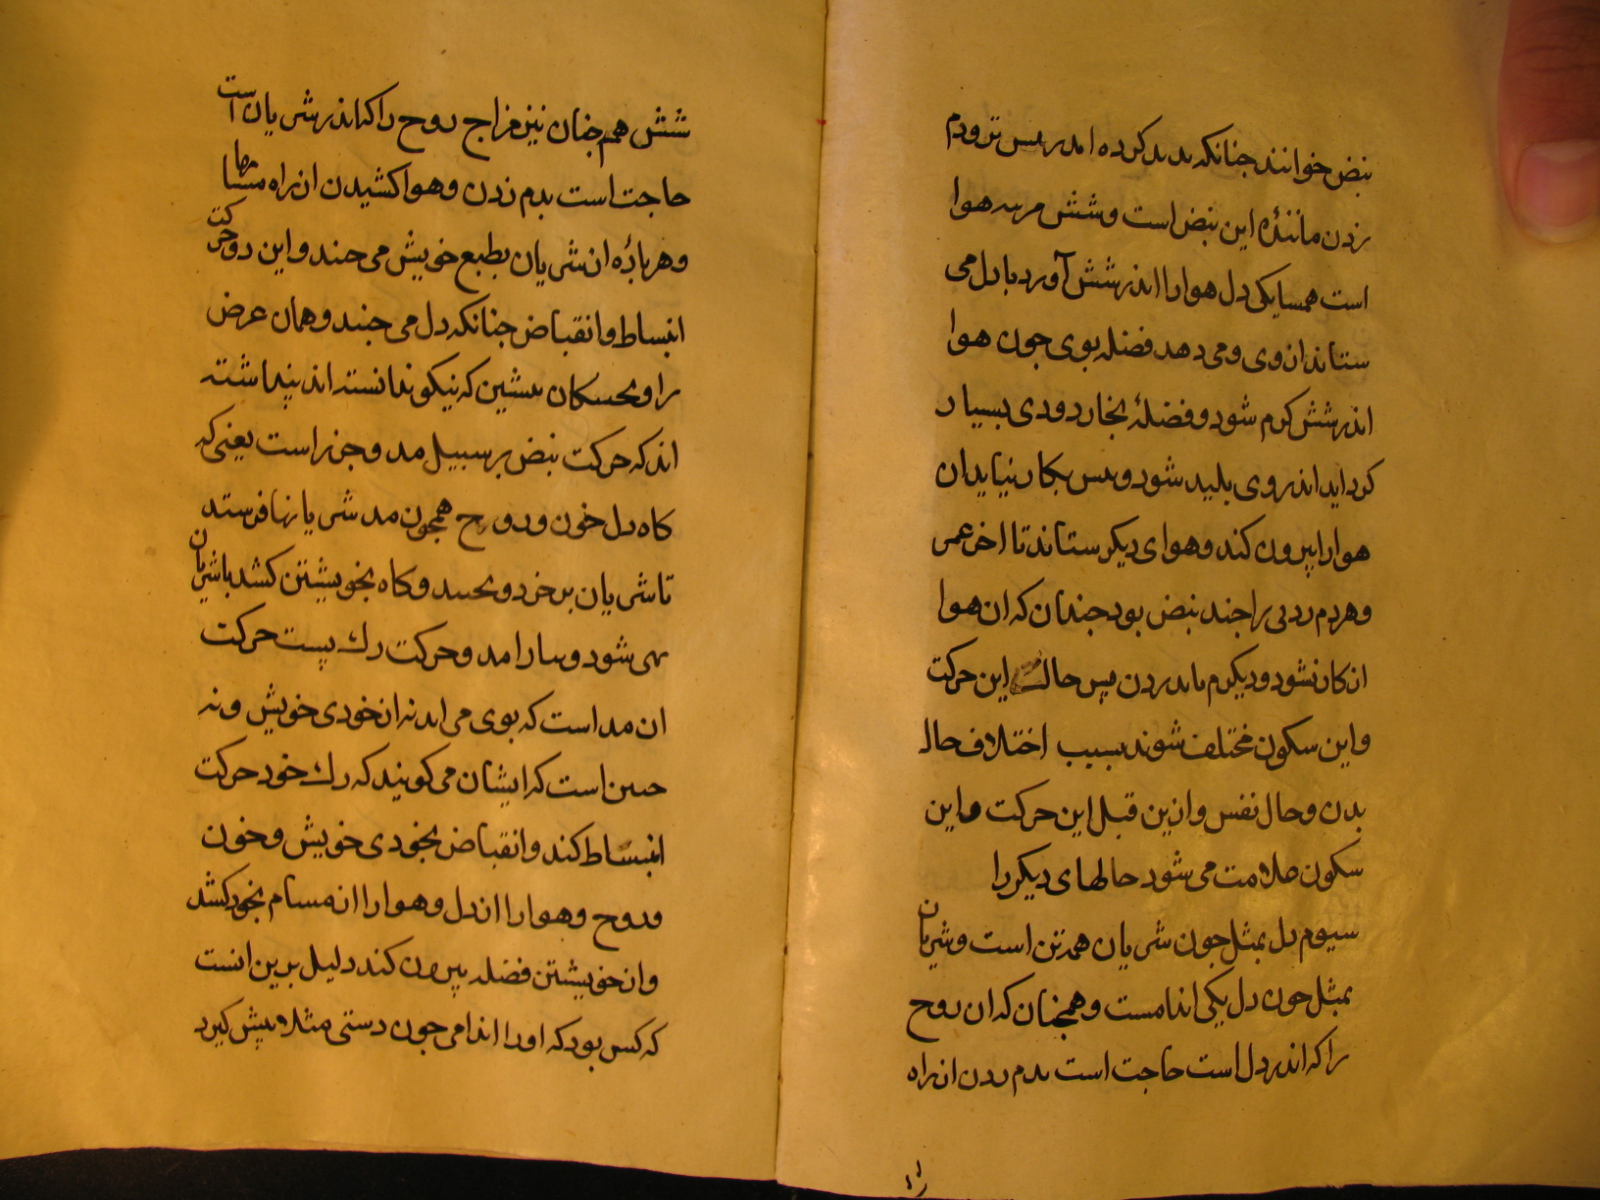 نبض خوانند جنانکه بدید کرده امد بس ترودم
زدن مانندهٔ این نبض است و شش مر هوا
است همسایکی دل هوا را اندر شش آورد با دل می
ستاند از وی و می دهد فضله بوی جون هوا
اندر شش کرم شود و فضلهٔ بخار دودی بسیار
کرد اید اندر وی بلید شود و بس بکار نیاید ان
هوا را بیرون کند و هوای دیکر ستاند تا اخر عمر
و هر دم زدنی را جند نبض بود جندان که ان هوا
ان کار نشود و دیکر دم باید زدن بس حالت این حرکت
و این سکون مختلف شوند بسبب اختلاف حال
بدن و حال نفس و از ین قبل این حرکت و این
سکون علامت می شود حالهای دیکر را
سیوم دل بمثل جون شریان همه تن است و شریان
بمثل جون دل یکی اندامست و همجنان که ان روح
را که اندر دل است حاجت است بدم زدن از راه
را
شش هم جنان نیز مزاج روح را که اندر شریان است
حاجت است بدم زدن و هوا کشیدن از راه مسامها
و هر بارهٔ از شریان بطبع خویش می جنبد و این دو حرکت
انبساط و انقباض جنانکه دل می جنبد و همان عرض
را و بجشکان بیشین که نیکو ندانسته اند پنداشته
اند که حرکت نبض بر سبیل مد و جزر است یعنی که
کاه دل خون و روح همجون مد شریانها فرستد
تا شریان بر خزد و بجنبد و کاه بخویشتن کشد تا شریان
تهی شود و بیارامد و حرکت رک پست حرکت
ان مد است که بوی می اید نه از خودی خویش و نه
جنین است که ایشان می کویند که رک خود حرکت
انبساط کند و انقباض بخودی خویش و خون
و روح و هوا را از دل و هوا را از مسام بخود کشد
و از خویشتن فضله بیرون کند دلیل برین انست
که کس بود که او را اندامی جون دستی مثلا بیش کیرد